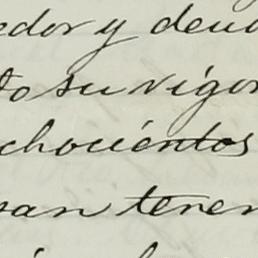 edor y deud
to su vigor
chocientos
van tener